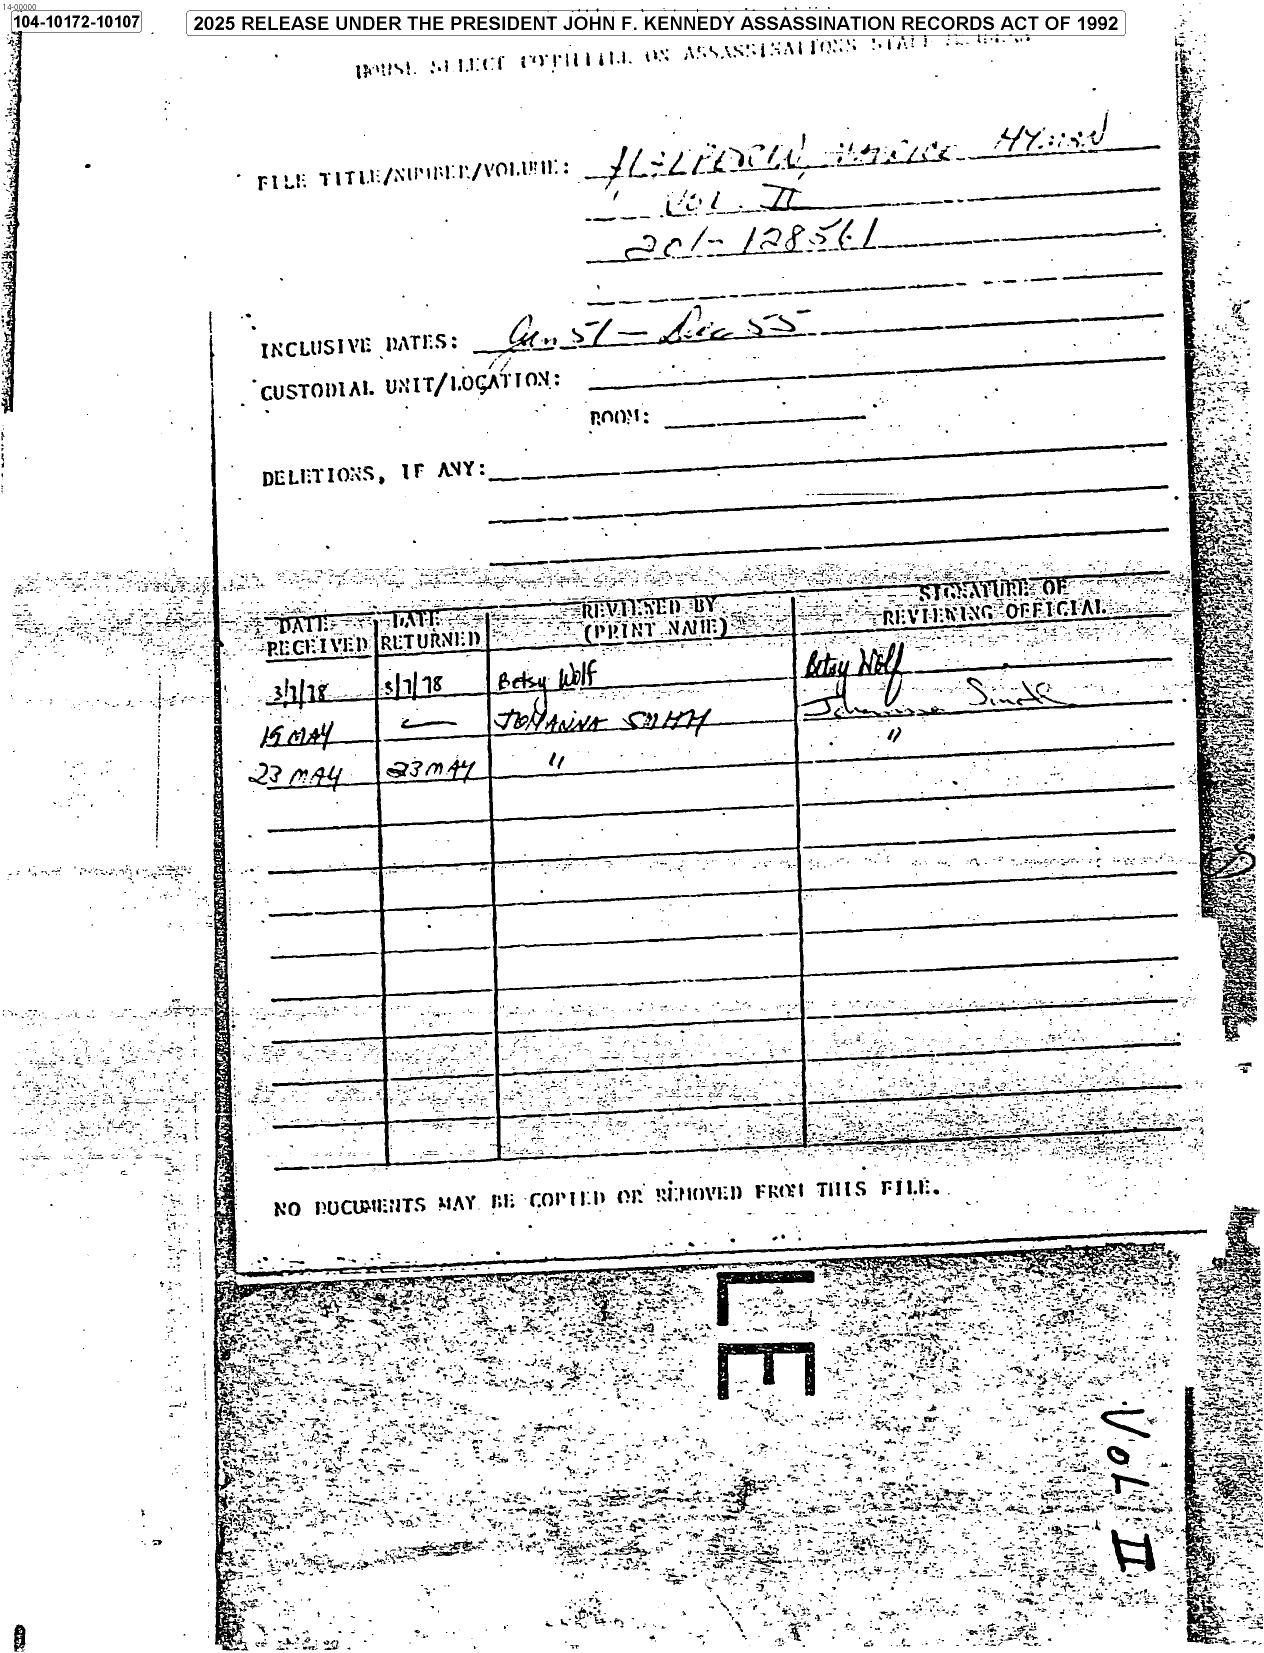 14-00000
104-10172-10107
2025 RELEASE UNDER THE PRESIDENT JOHN F. KENNEDY ASSASSINATION RECORDS ACT OF 1992
HOUSE SELECT COMMITTEE ON ASSASSINATIONS STAFF
FILE TITLE/NUMBER/VOLUME: HALPERIN, MAURICE HYMAN
VOL. II
201-128561
INCLUSIVE DATES: Jan 51 - Dec 55
CUSTODIAL UNIT/LOCATION:
ROOM:
DELETIONS, IF ANY:
DATE RECEIVED DATE RETURNED REVIEWED BY (PRINT NAME) SIGNATURE OF REVIEWING OFFICIAL
3/7/78 3/7/78 Betsy Wolf Betsy Wolf
19 MAY JOHANNA SMITH Johanna Smith
23 MAY 23 MAY " "
NO DOCUMENTS MAY BE COPIED OR REMOVED FROM THIS FILE.
LE
VOL II